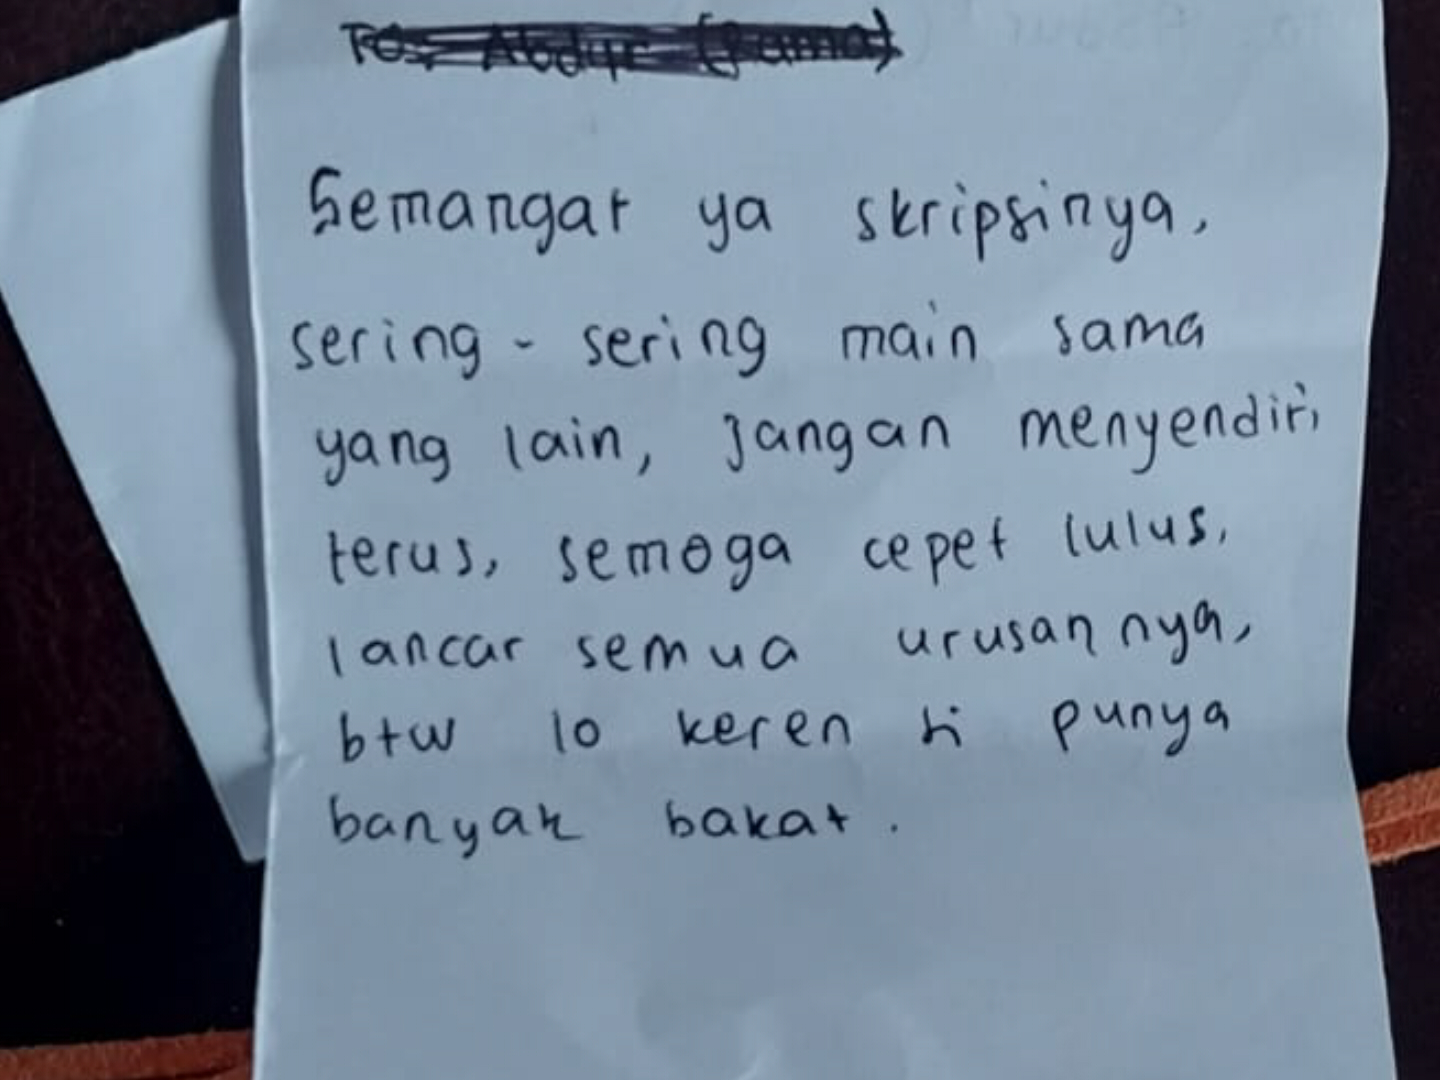 To: Abdur (Rama)
Semangat ya skripsinya,
sering - sering main sama
yang lain, jangan menyendiri
terus, semoga cepet lulus,
lancar semua urusannya,
btw lo keren si punya
banyak bakat.